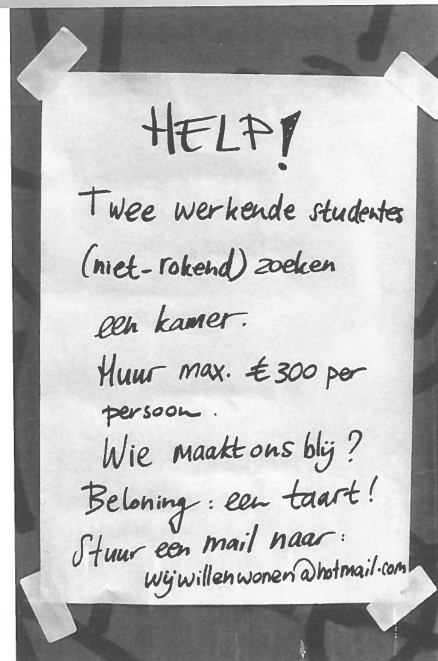 HELP!
Twee werkende studentes
(niet-rokend) zoeken
een kamer.
Huur max. €300 per
persoon.
Wie maakt ons blij?
Beloning: een taart!
Stuur een mail naar:
wijwillenwonen@hotmail.com